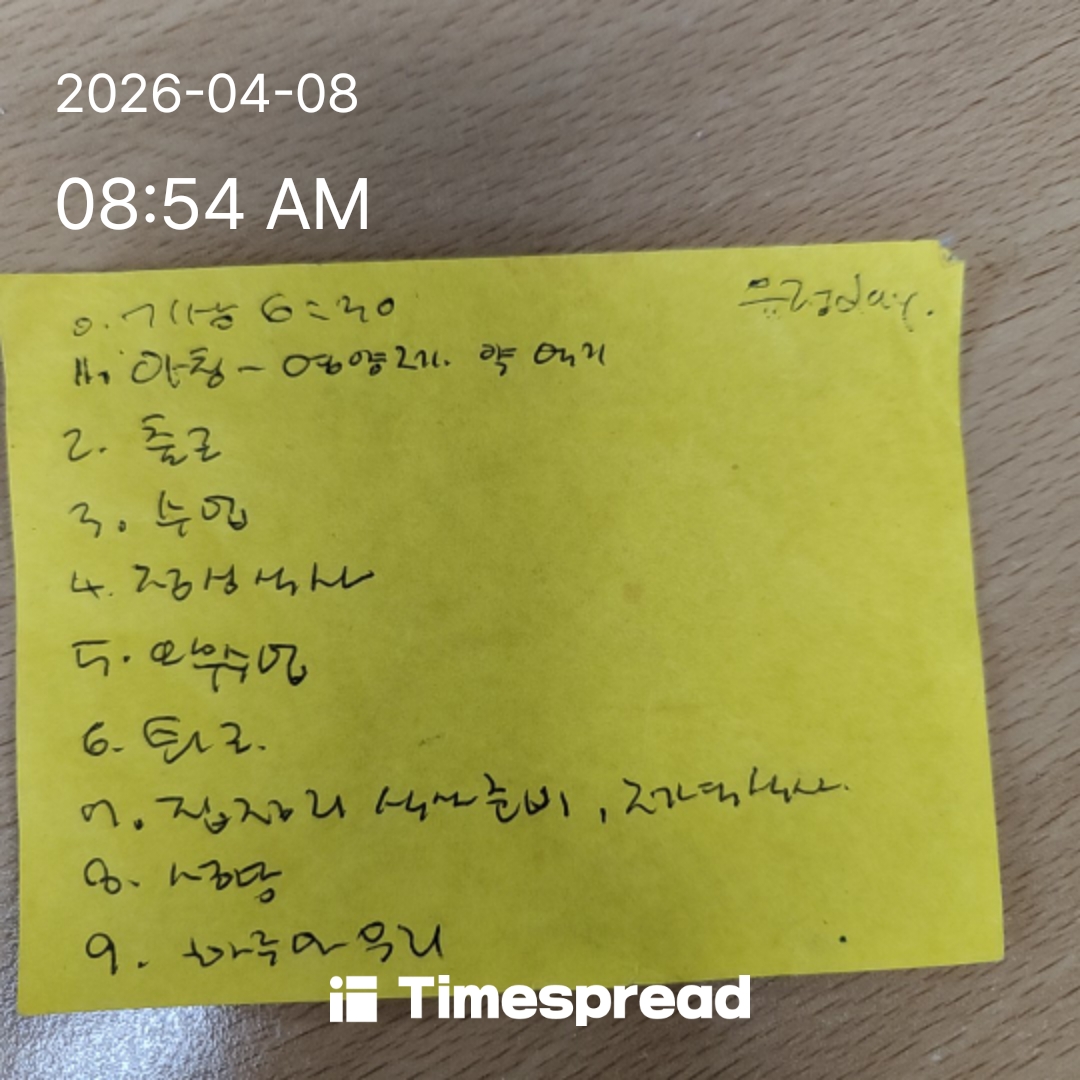 2026-04-08
08:54 AM
0. 기상 6:30
day.
1. 아침 - 영양제. 약 먹기
2. 출근
3. 수업
4. 점심식사
5. 오후수업
6. 퇴근.
7. 집정리 식사준비, 저녁식사.
8. 성당
9. 하루마무리
Timespread